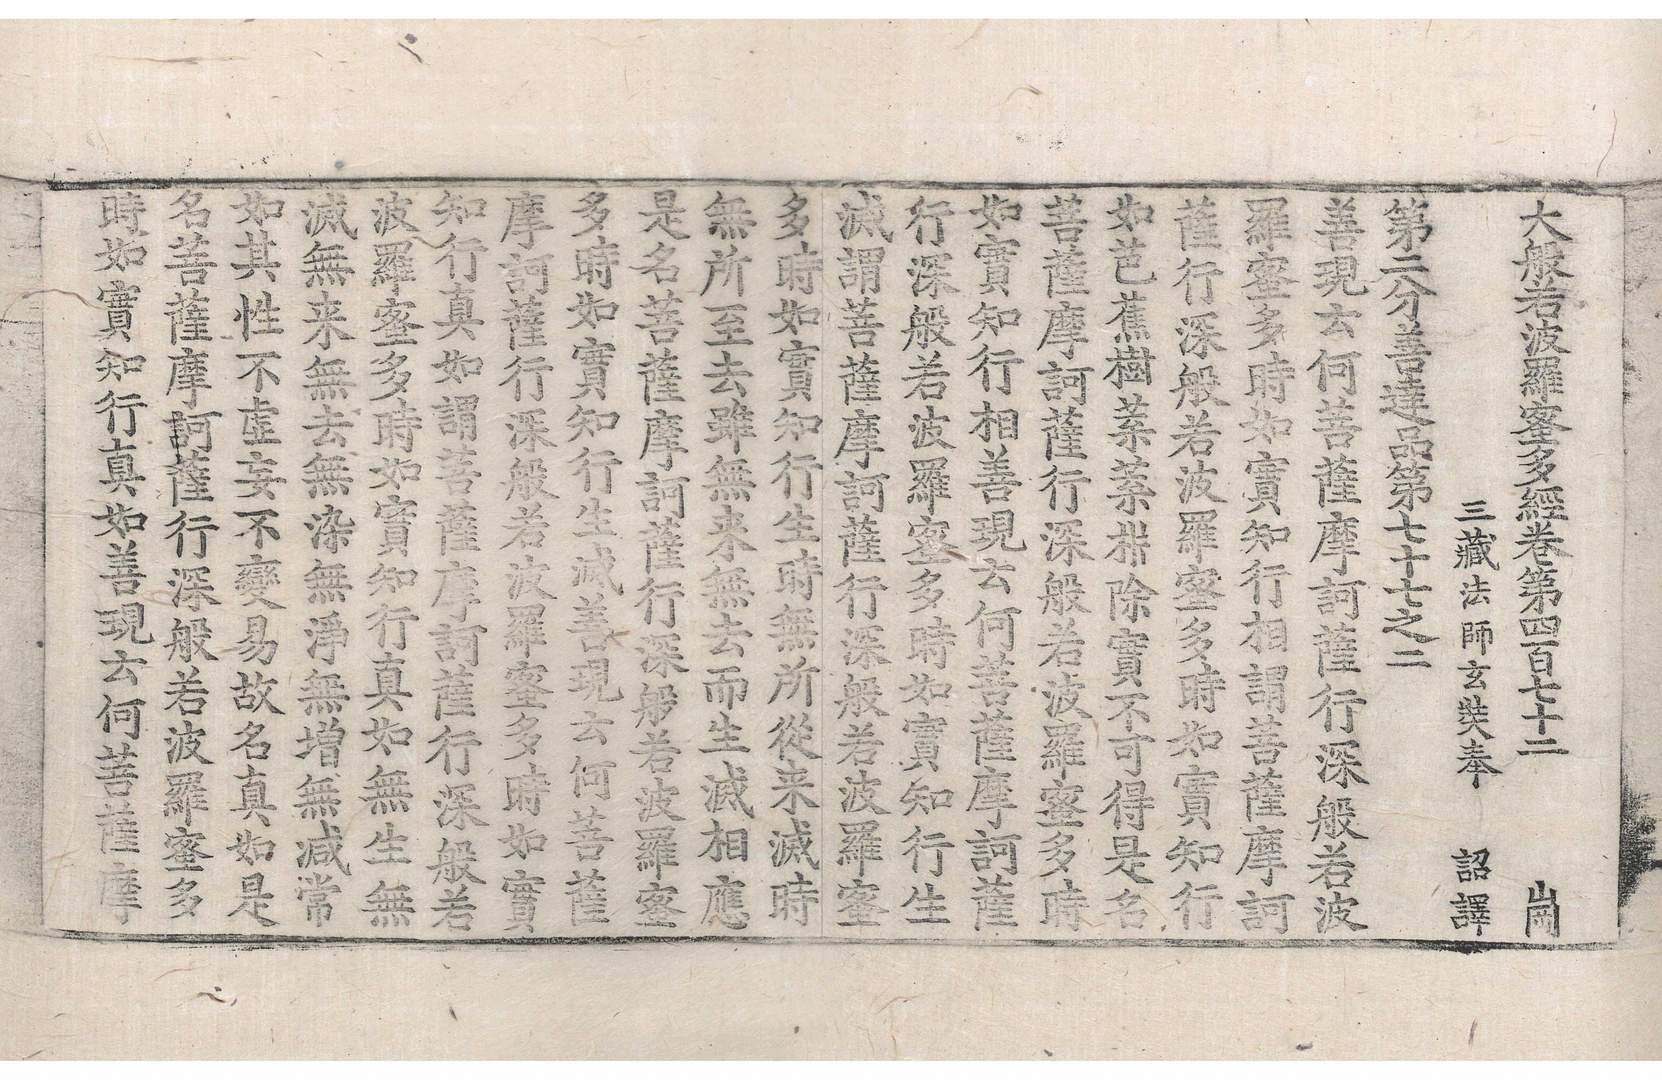 大般若波羅蜜多經卷第四百七十二　崗
三藏法師玄奘奉　詔譯
第二分善達品第七十七之二
善現云何菩薩摩訶薩行深般若波
羅蜜多時如實知行相謂菩薩摩訶
薩行深般若波羅蜜多時如實知行
如芭蕉樹葉葉析除實不可得是名
菩薩摩訶薩行深般若波羅蜜多時
如實知行相善現云何菩薩摩訶薩
行深般若波羅蜜多時如實知行生
滅謂菩薩摩訶薩行深般若波羅蜜
多時如實知行生時無所從来滅時
無所至去雖無来無去而生滅相應
是名菩薩摩訶薩行深般若波羅蜜
多時如實知行生滅善現云何菩薩
摩訶薩行深般若波羅蜜多時如實
知行真如謂菩薩摩訶薩行深般若
波羅蜜多時如實知行真如無生無
滅無来無去無染無淨無增無減常
如其性不虛妄不變易故名真如是
名菩薩摩訶薩行深般若波羅蜜多
時如實知行真如善現云何菩薩摩